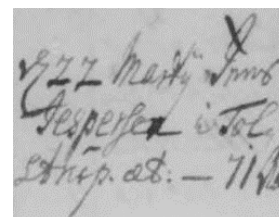 722 Martij Jens
Jespersen i Tol
strup. æt: — 71